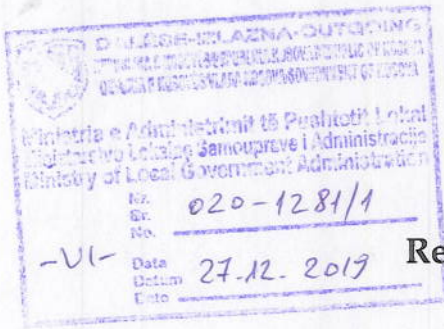 DALËSE-IZLAZNA-OUTGOING
Ministria e Administrimit të Pushtetit Lokal
Ministarstvo Lokalne Samouprave i Administracije
Ministry of Local Government Administration
Nr.
Br.
No.
020-1281/1
-VI-
Data
Datum
Date
27.12.2019
Re